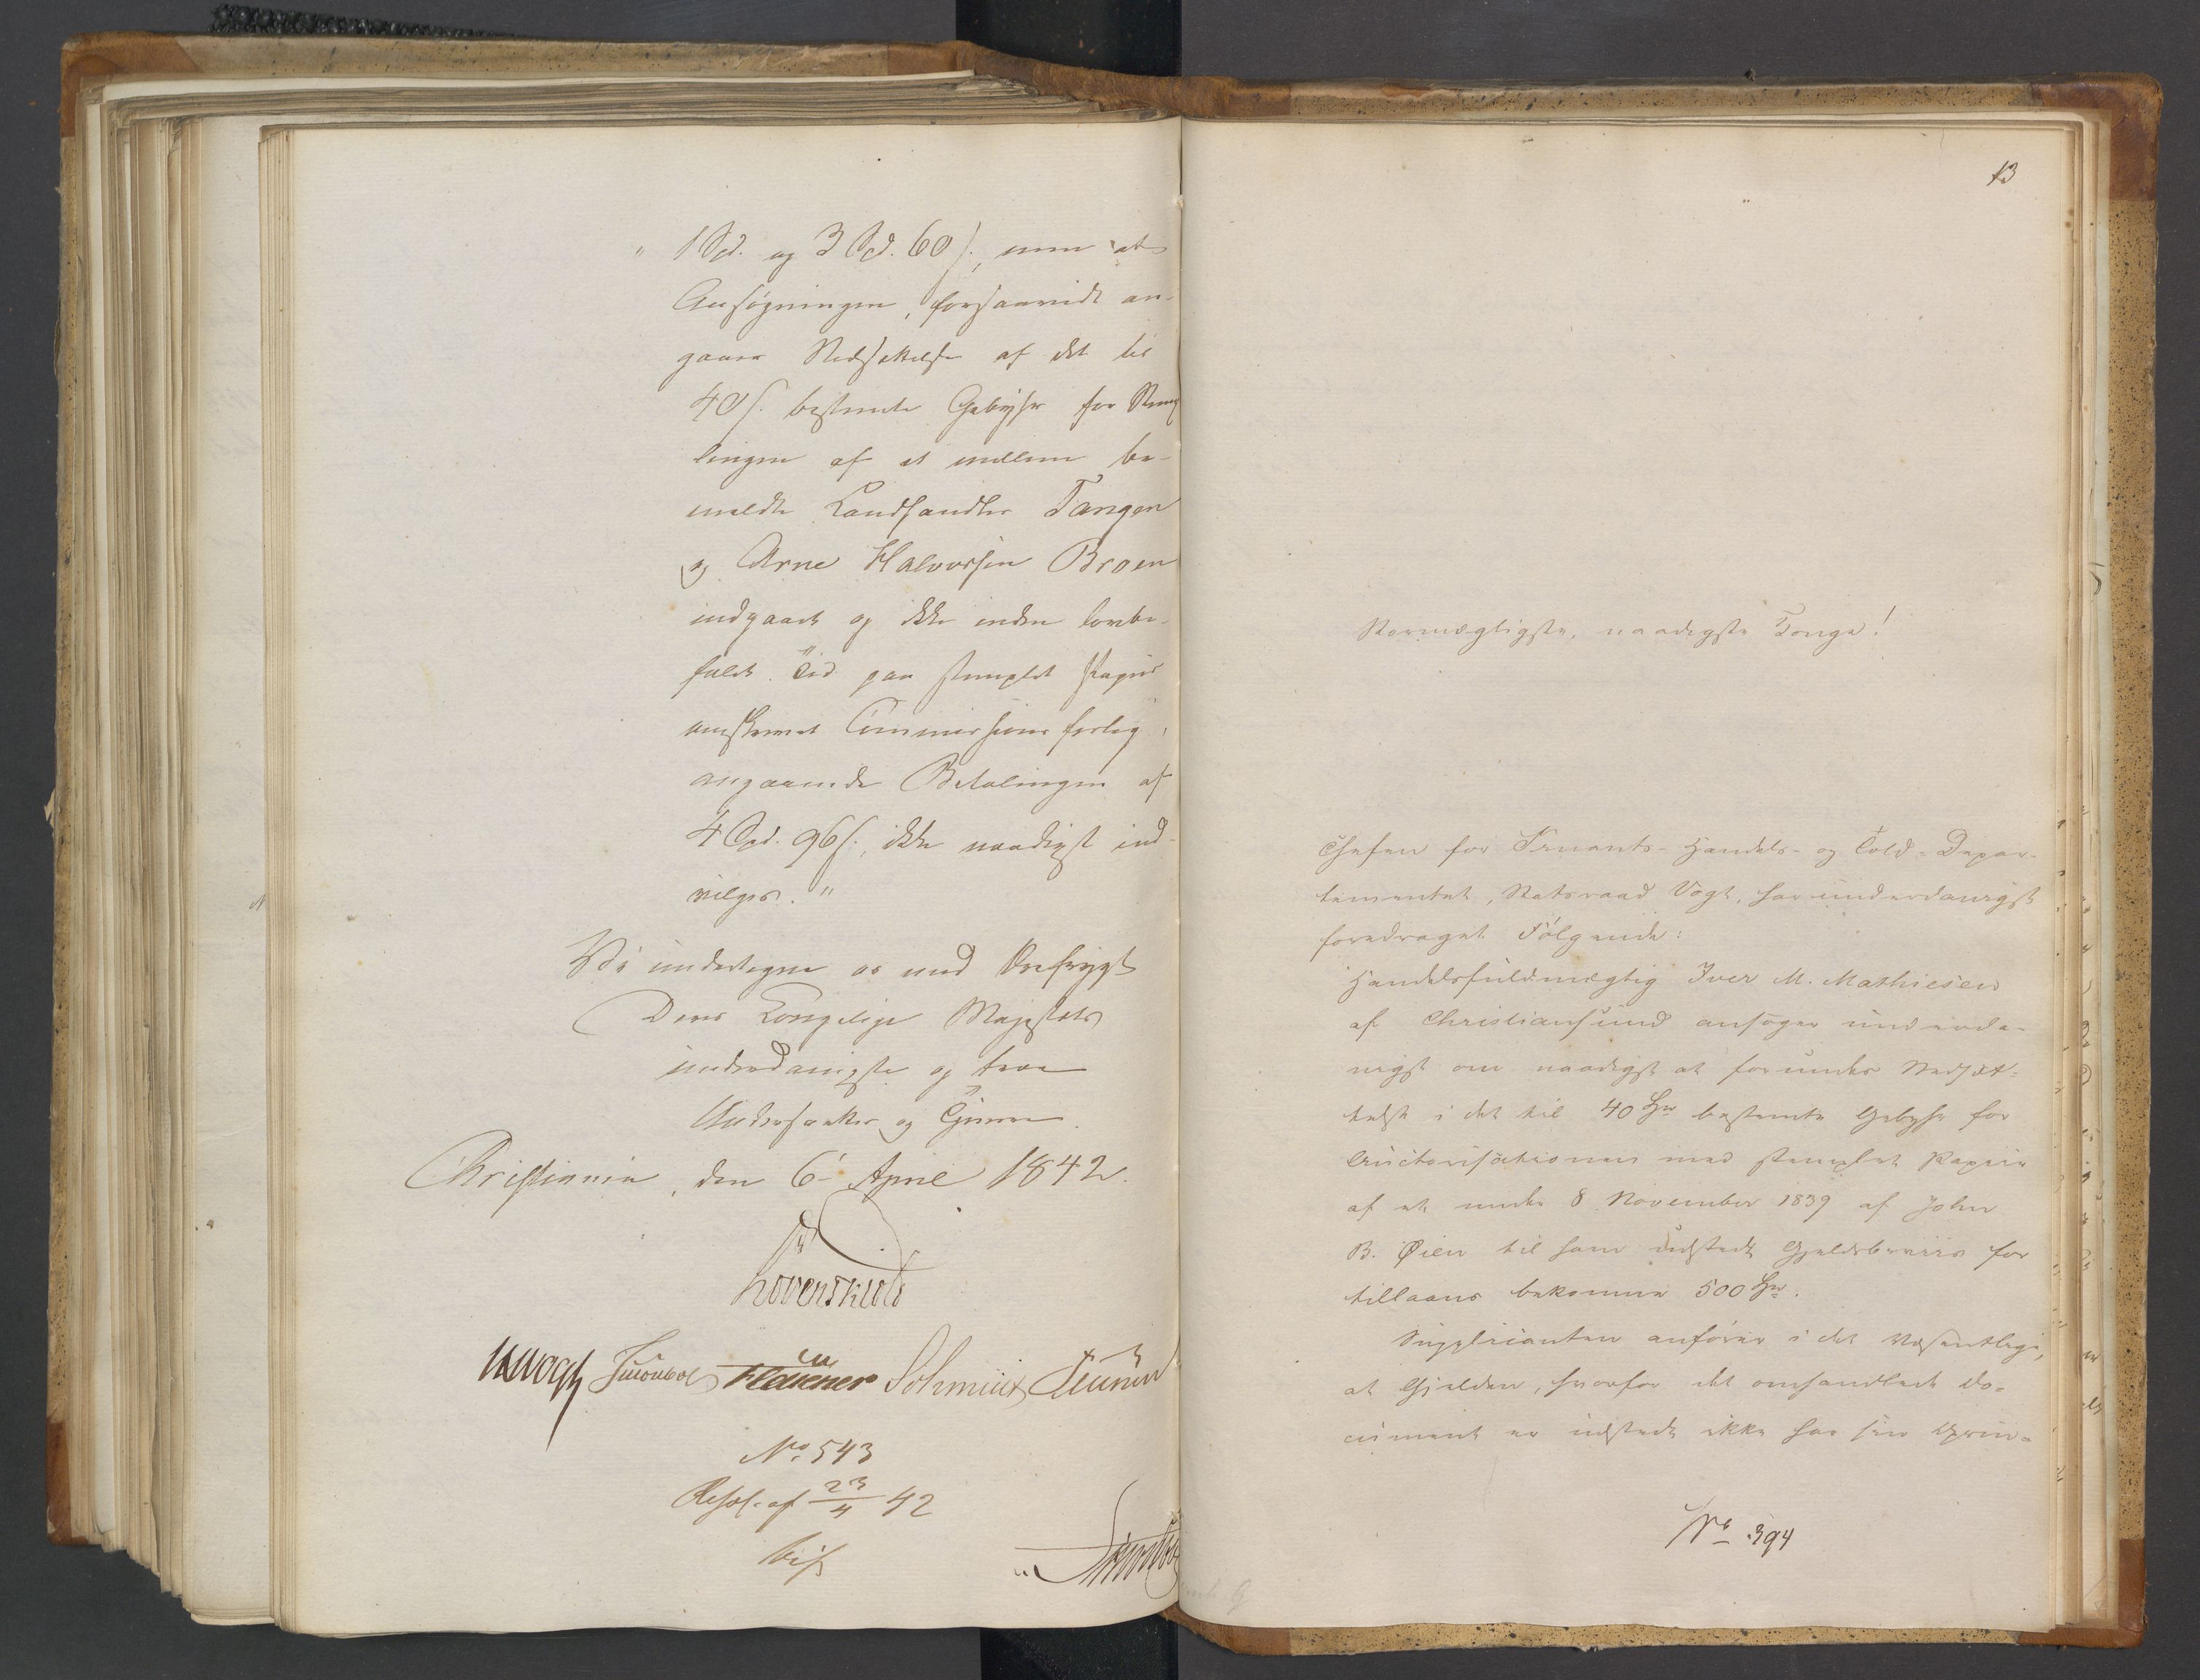 " 1 Spd. og 3 Spd. 60 s., men at
Ansøgningen, forsaavidt an-
gaaer Nedsættelse af det til
40 s. bestemte Gebyhr for Stemp
lingen af et mellem be-
meldte Landhandler Tangen
og Arne Halvorsen Broen
indgaaet og ikke inden lovbe-
falet Tid paa stemplet Papiir
omskrevet Commissions forlig,
angaaende Betalingen af
4 Spd. 96 s., ikke naadigst ind-
vilges."
Vi undertegne os med Ærefrygt
Deres Kongelige Majestæts
underdanigste og troe
Undersaatter og Tjenere.
Christiania, den 6 April 1842.
Løvenskiold
Vogt Schmidt
No. 543
Resol. af 23/4 42
13
Stormægtigste, naadigste Konge!
Chefen for Finants-Handels- og Told-Depar-
tementet, Statsraad Vogt, har underdanigst
foredraget Følgende:
Handelsfuldmægtig Iver M. Mathiesen
af Christiansund ansøger underda-
nigst om naadigst at forundes Nedsæt-
telse i det til 40 Spd bestemte Gebyhr for
Auctorisationen med stemplet Papiir
af et under 8 November 1839 af John
B. Øien til ham udstedt Gjeldsbeviis for
tillaans bekomne 500 Spd.
Supplicanten anfører i det Væsentlige,
at Gjelden, hvorfor det omhandlede Do-
cument er udstedt ikke har sin Oprin-
No 394